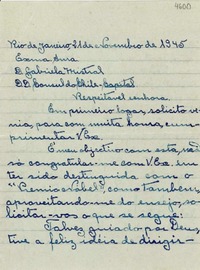 4600
Rio de Janeiro, 21 de Novembro de 1945
Exma. Snra.
D. Gabriela Mistral
DD. Consul do Chile - Capital
Respeitavel senhora.
Em primeiro logar, solicito ve-
nia, para, com muita honra, cum-
primentar V. Ex.
É meu objectivo com esta, não
só congratular-me com V. Ex. em
ter sido destinguida com o
"Premio Nobel", como tambem,
aproveitando-me do ensejo, so-
licitar-vos o que se segue:
Talvez guiado por Deus,
tive a feliz idéia de dirigir-